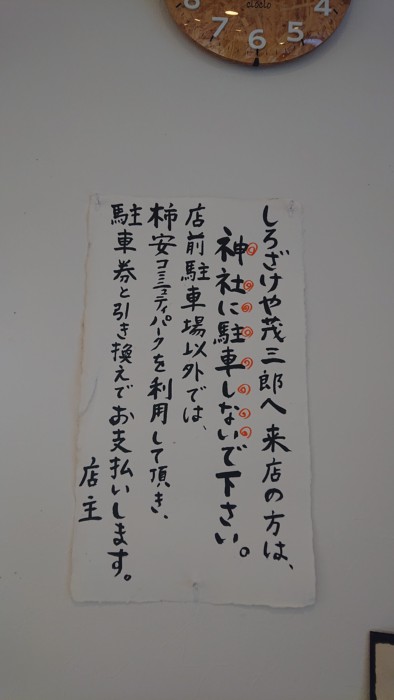 しろざけや茂三郎へ来店の方は、
神社に駐車しないで下さい。
店前駐車場以外では、
柿安コミュニティパークを利用して頂き、
駐車券と引き換えでお支払いします。
店主
8
7
6
5
4